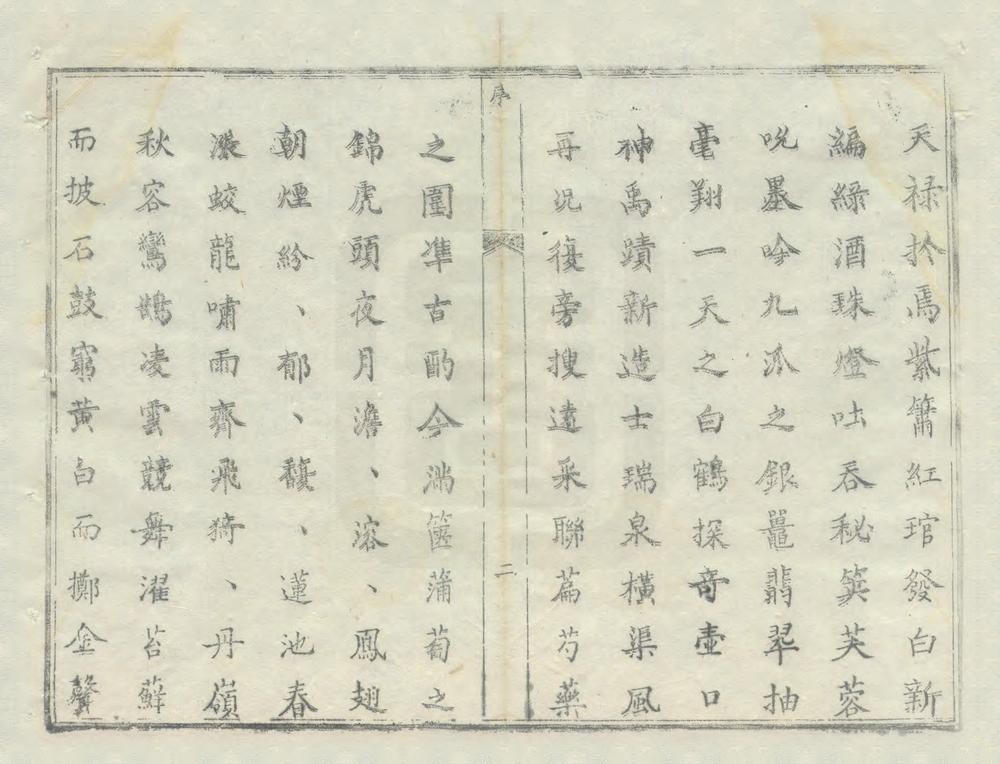 天禄扵焉紫簫紅琯發白新
編綠酒珠燈吐吞秘笈芙蓉
吮墨吟九派之銀鼉翡翠抽
毫翔一天之白鶴探奇壺口
神禹蹟新造士瑞泉橫渠風
再况復旁搜遠采聯篇芍藥
序
二
之圍準古酌今滿篋蒲萄之
錦虎頭夜月澹、溶、鳳翅
朝煙紛、郁、馥、蓮池春
漲蛟龍嘯雨齊飛猗、丹嶺
秋容鸞鵲凌雲競舞濯苔蘚
而披石鼓窮黃白而擲金聲